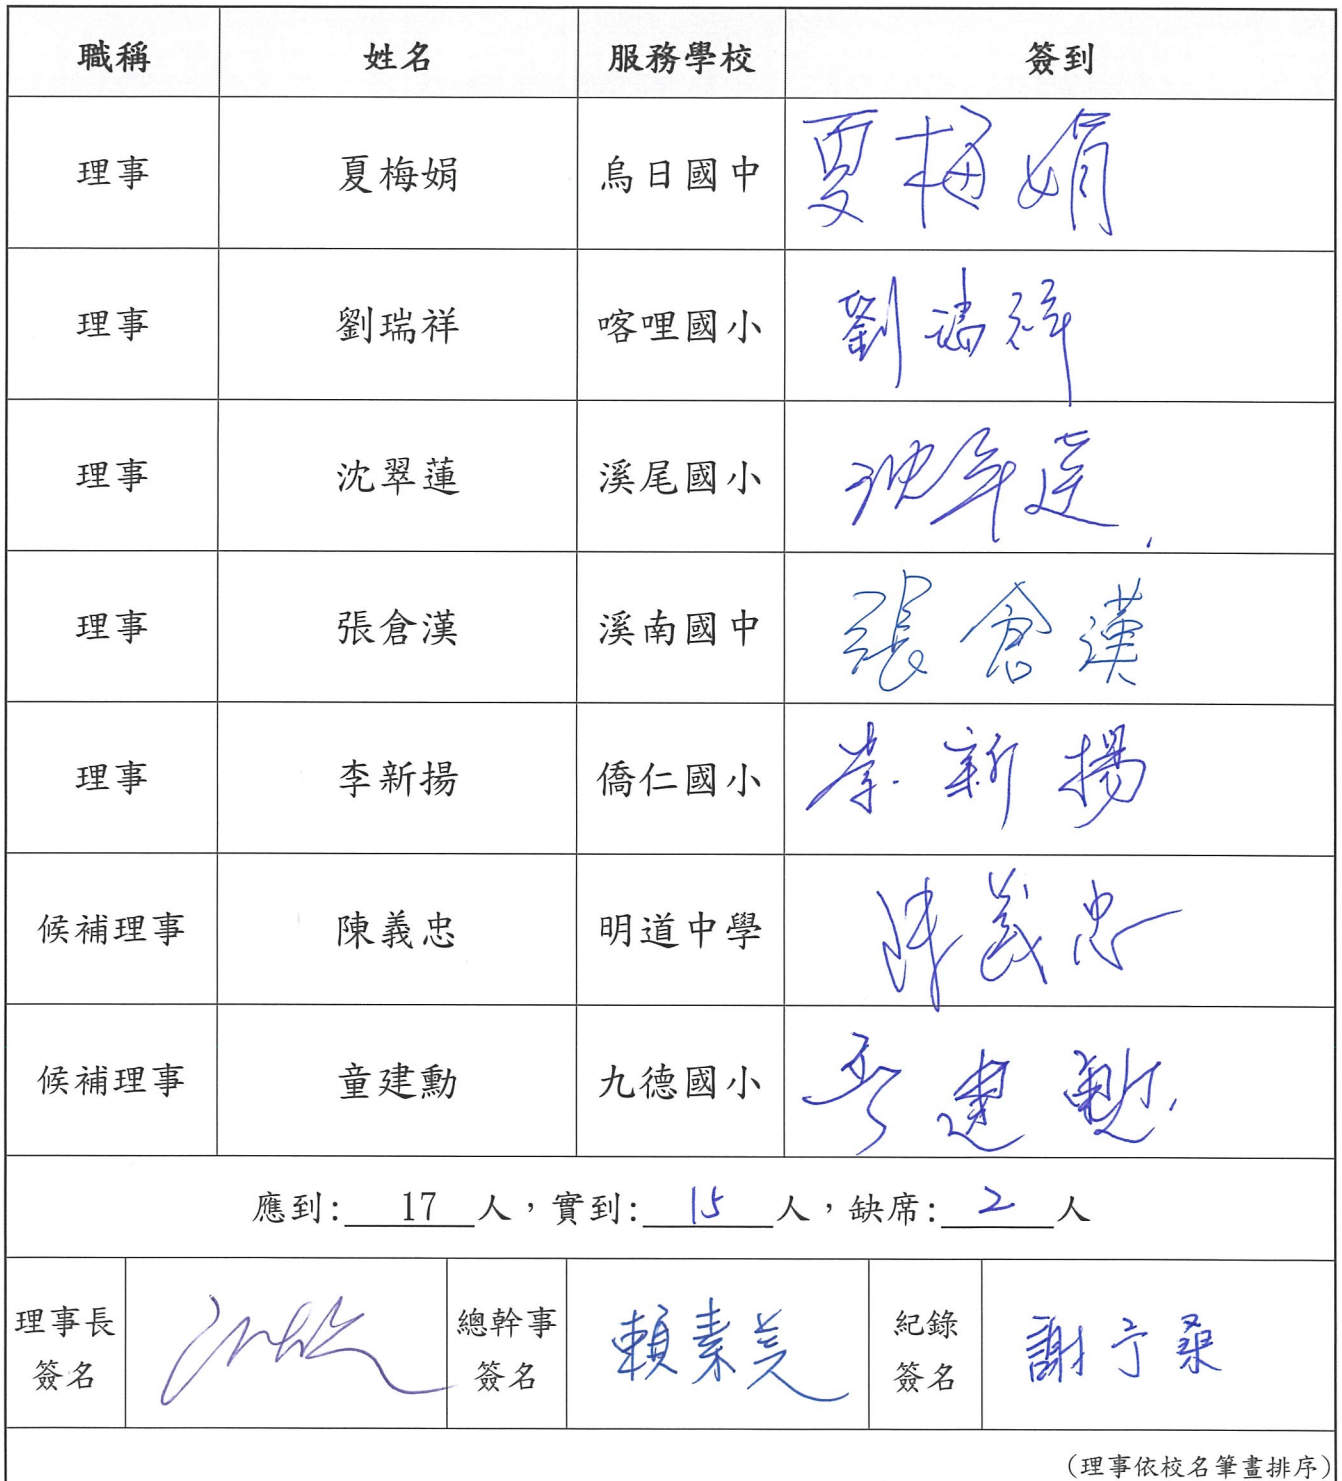 職稱 姓名 服務學校 簽到
理事 夏梅娟 烏日國中 夏梅娟
理事 劉瑞祥 喀哩國小 劉瑞祥
理事 沈翠蓮 溪尾國小 沈翠蓮
理事 張倉漢 溪南國中 張倉漢
理事 李新揚 僑仁國小 李新揚
候補理事 陳義忠 明道中學 陳義忠
候補理事 童建勳 九德國小 童建勳
應到: 17 人，實到: 15 人，缺席: 2 人
理事長簽名 總幹事簽名 賴素美 紀錄簽名 謝于桑
(理事依校名筆畫排序)